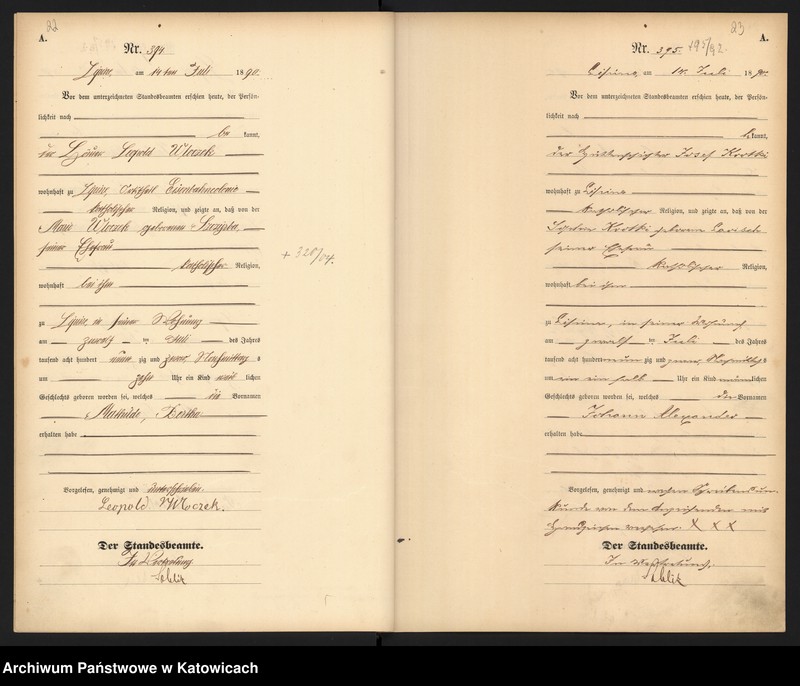 22
A.
Nr. 394
am 14ten Juli 1890.
Vor dem unterzeichneten Standesbeamten erschien heute, der Persön-
lichkeit nach
be kannt,
der Leopold Wloczek
wohnhaft zu Eisenbahncolonie
katholischer Religion, und zeigte an, daß von der
Marie Wloczek geborenen
seiner Ehefrau
katholischer Religion,
wohnhaft bei ihm
zu in seiner Wohnung
am zwölf ten Juli des Jahres
tausend acht hundert neun zig und zwar Nachmittag s
um zehn Uhr ein Kind weib lichen
Geschlechts geboren worden sei, welches die Vornamen
Mathilde, Bertha
erhalten habe
Vorgelesen, genehmigt und unterschrieben.
Leopold Wloczek.
Der Standesbeamte.
In Vertretung
+ 328/04.
23
A.
Nr. 395.
am 14. Juli 1890.
Vor dem unterzeichneten Standesbeamten erschien heute, der Persön-
lichkeit nach
be kannt,
der Josef Krotki
wohnhaft zu
katholischer Religion, und zeigte an, daß von der
Krotki geborene
seiner Ehefrau
katholischer Religion,
wohnhaft bei ihm
zu in seiner Wohnung
am zwölf ten Juli des Jahres
tausend acht hundert neun zig und zwar Nachmittag s
um ein ein halb Uhr ein Kind männ lichen
Geschlechts geboren worden sei, welches den Vornamen
Johann Alexander
erhalten habe
Vorgelesen, genehmigt und wegen Schreibens un-
kunde von dem Anzeigenden mit
Handzeichen versehen. X X X
Der Standesbeamte.
In Vertretung.
Archiwum Państwowe w Katowicach